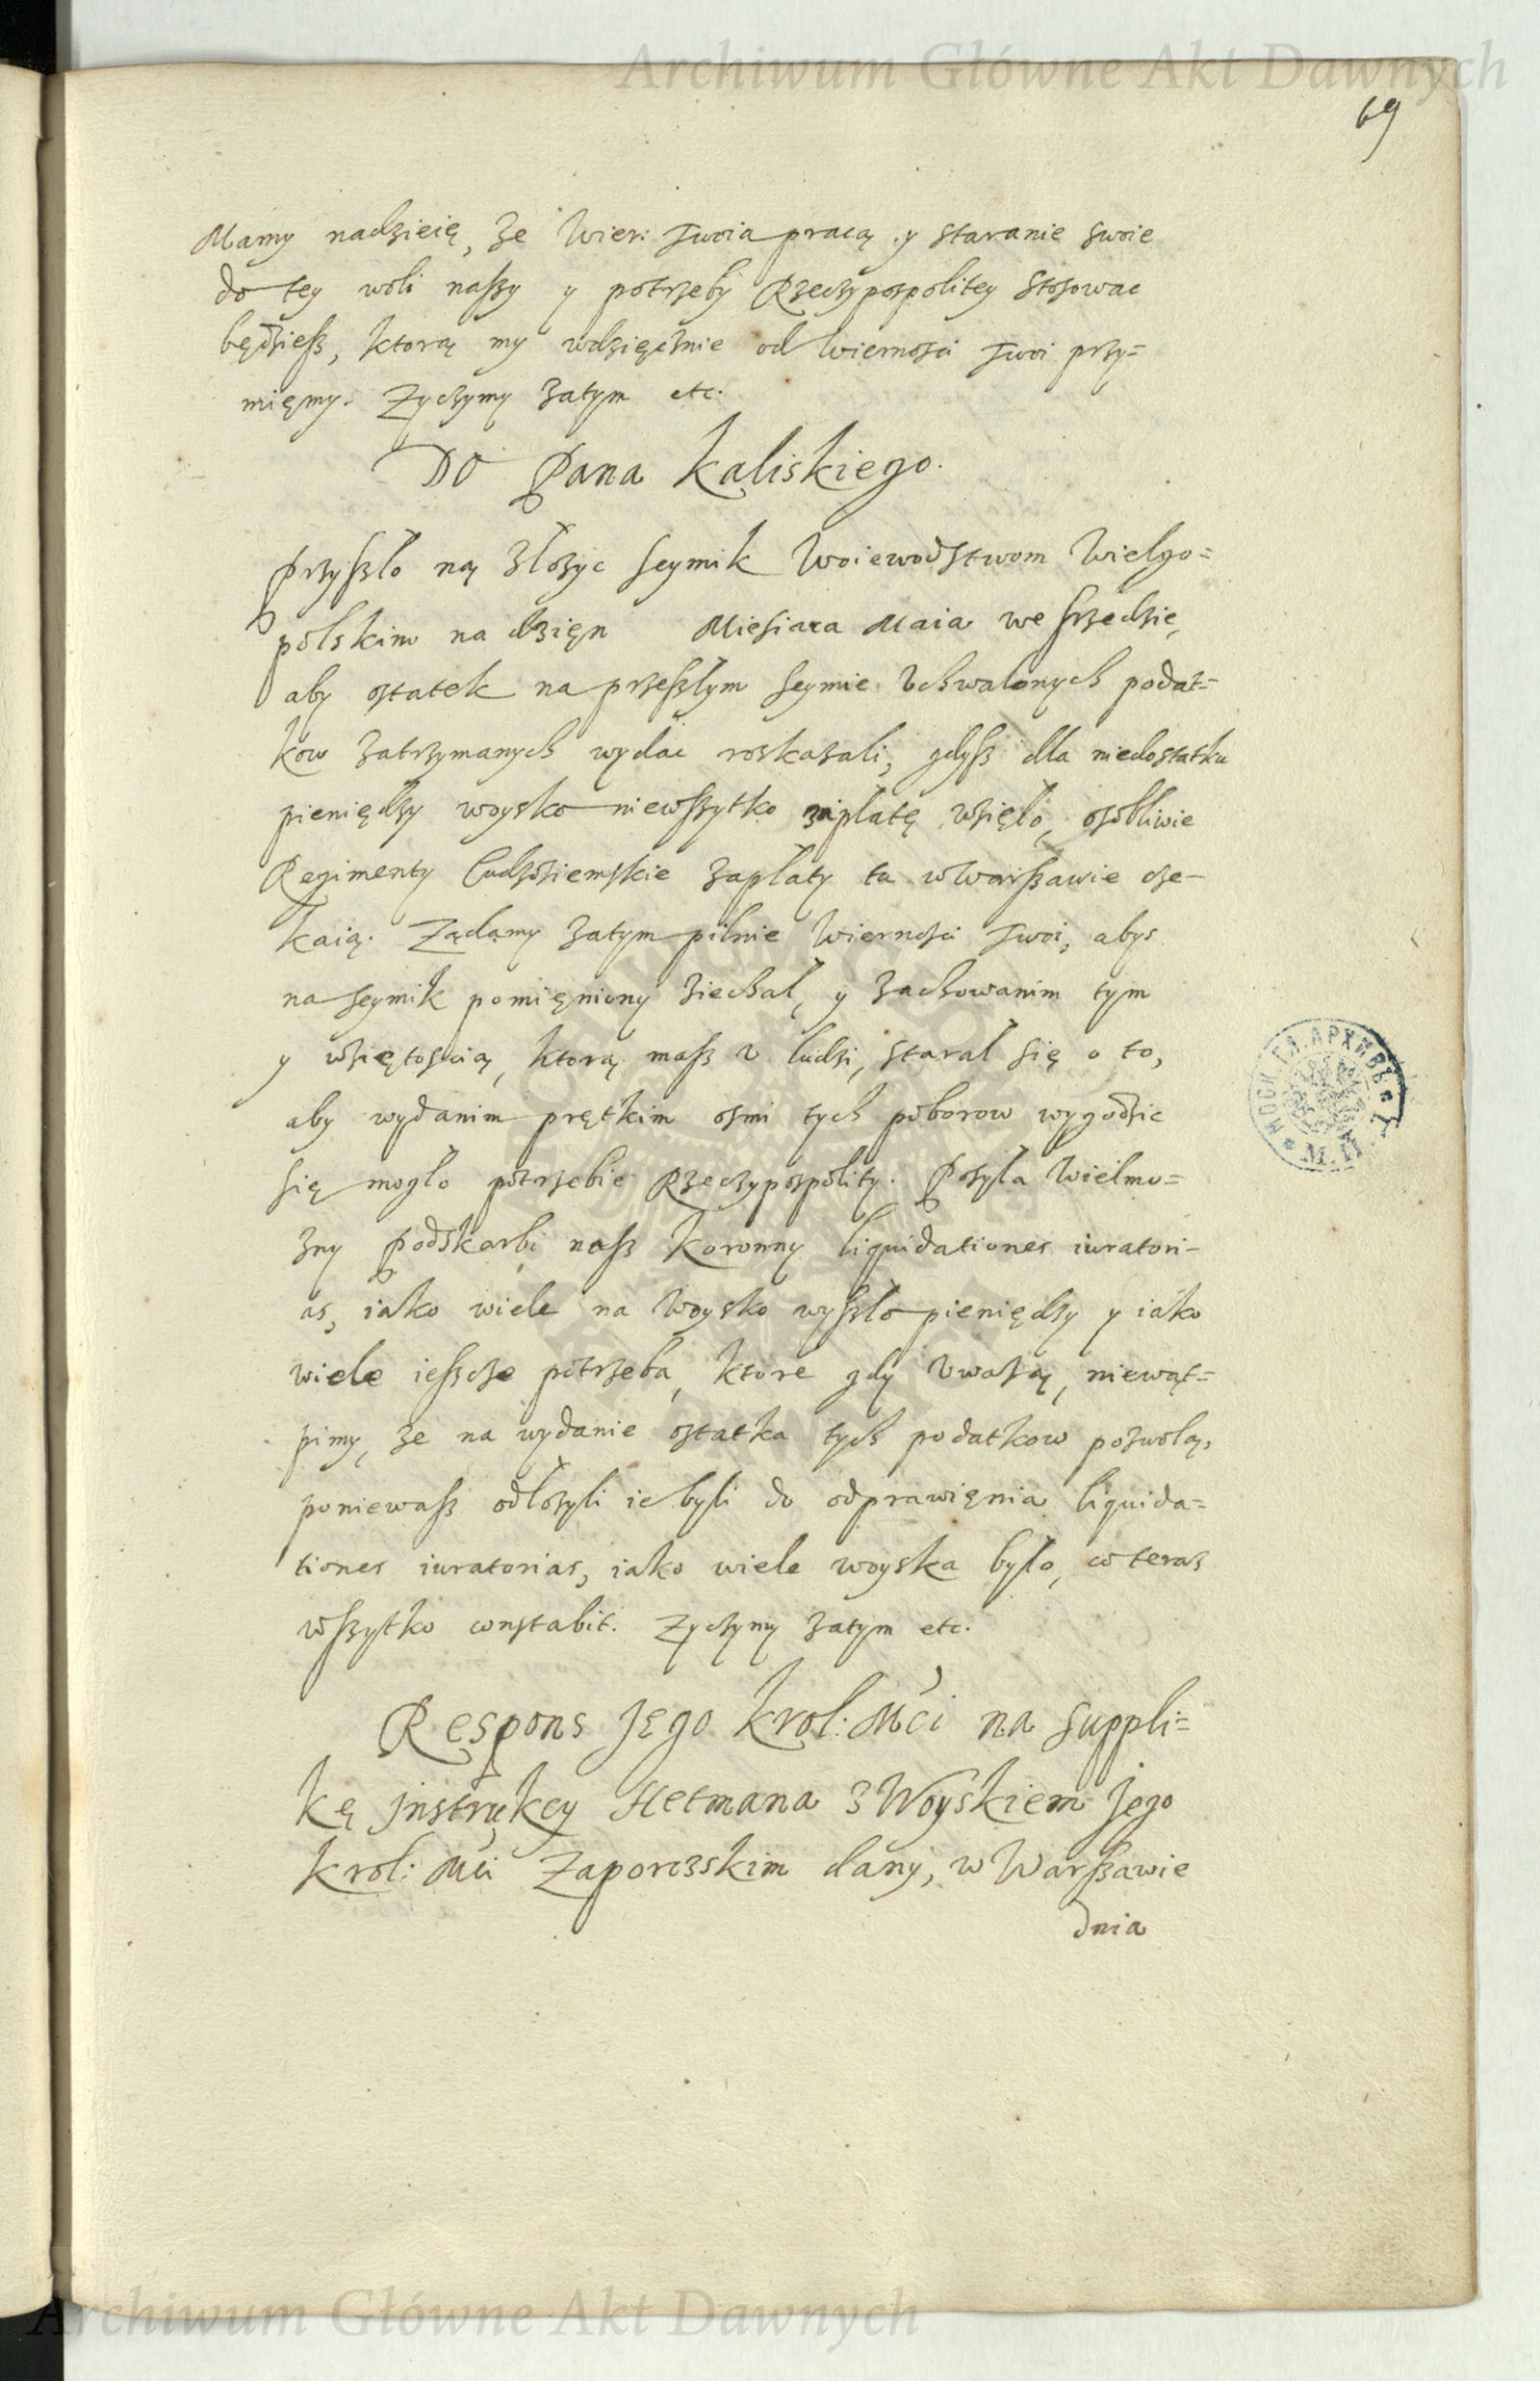 Archiwum Główne Akt Dawnych
69
Mamy nadzieię, ze Wier: Twoia pracą y staranie swoie
do tey woli naszy y potrzeby Rzeczypospolitey stosowac
będziesz, ktorą my wdzięcznie od Wiernosci Twoi przy=
mięmy. Zyczymy zatym etc.
DO Pana Kaliskiego.
Przyszło ną złozyc seymik Woiewodstwom Wielgo=
polskim na dzięn Miesiaca Maia we srzedzie,
aby ostatek na przeszłym seymie Vchwalonych podat=
kow zatrzymanych wydac roskazali, gdysz dla niedostatku
pieniędzy woysko niewszytko zapłatę wzięło, osobliwie
Regimenty Cudzoziemskie zapłaty tu w Warszawie cze-
kaią. Ządamy zatym pilnie Wiernosci Twoi, abys
na seymik pomięniony ziechał, y zachowanim tym
y wziętoscią, ktorą masz v ludzi, starał się o to,
aby wydanim prętkim osmi tych poborow wygodzic
się mogło potrzebie Rzeczypospolity. Posyła Wielmo=
zny Podskarbi nasz Koronny liquidationes iuratori-
as, iako wiele na Woysko wyszło pieniędzy y iako
wiele ieszcze potrzeba, ktore gdy Vwazą, niewąt=
pimy, ze na wydanie ostatka tych podatkow pozwolą,
poniewasz odłozyli ie byli do odprawięnia liquida=
tiones iuratorias, iako wiele woyska było, co teraz
wszytko constabit. Zyczymy zatym etc.
Respons Jego Krol: Mći na suppli=
kę jnstrukcy Hetmana z Woyskiem Jego
Krol: Mći Zaporozskim dany, w Warszawie
dnia
Archiwum Główne Akt Dawnych